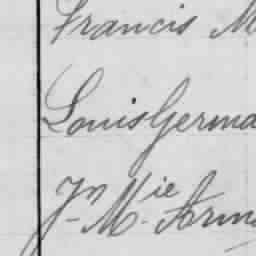 Francis M
Louis Germa
Jn Mie Arma